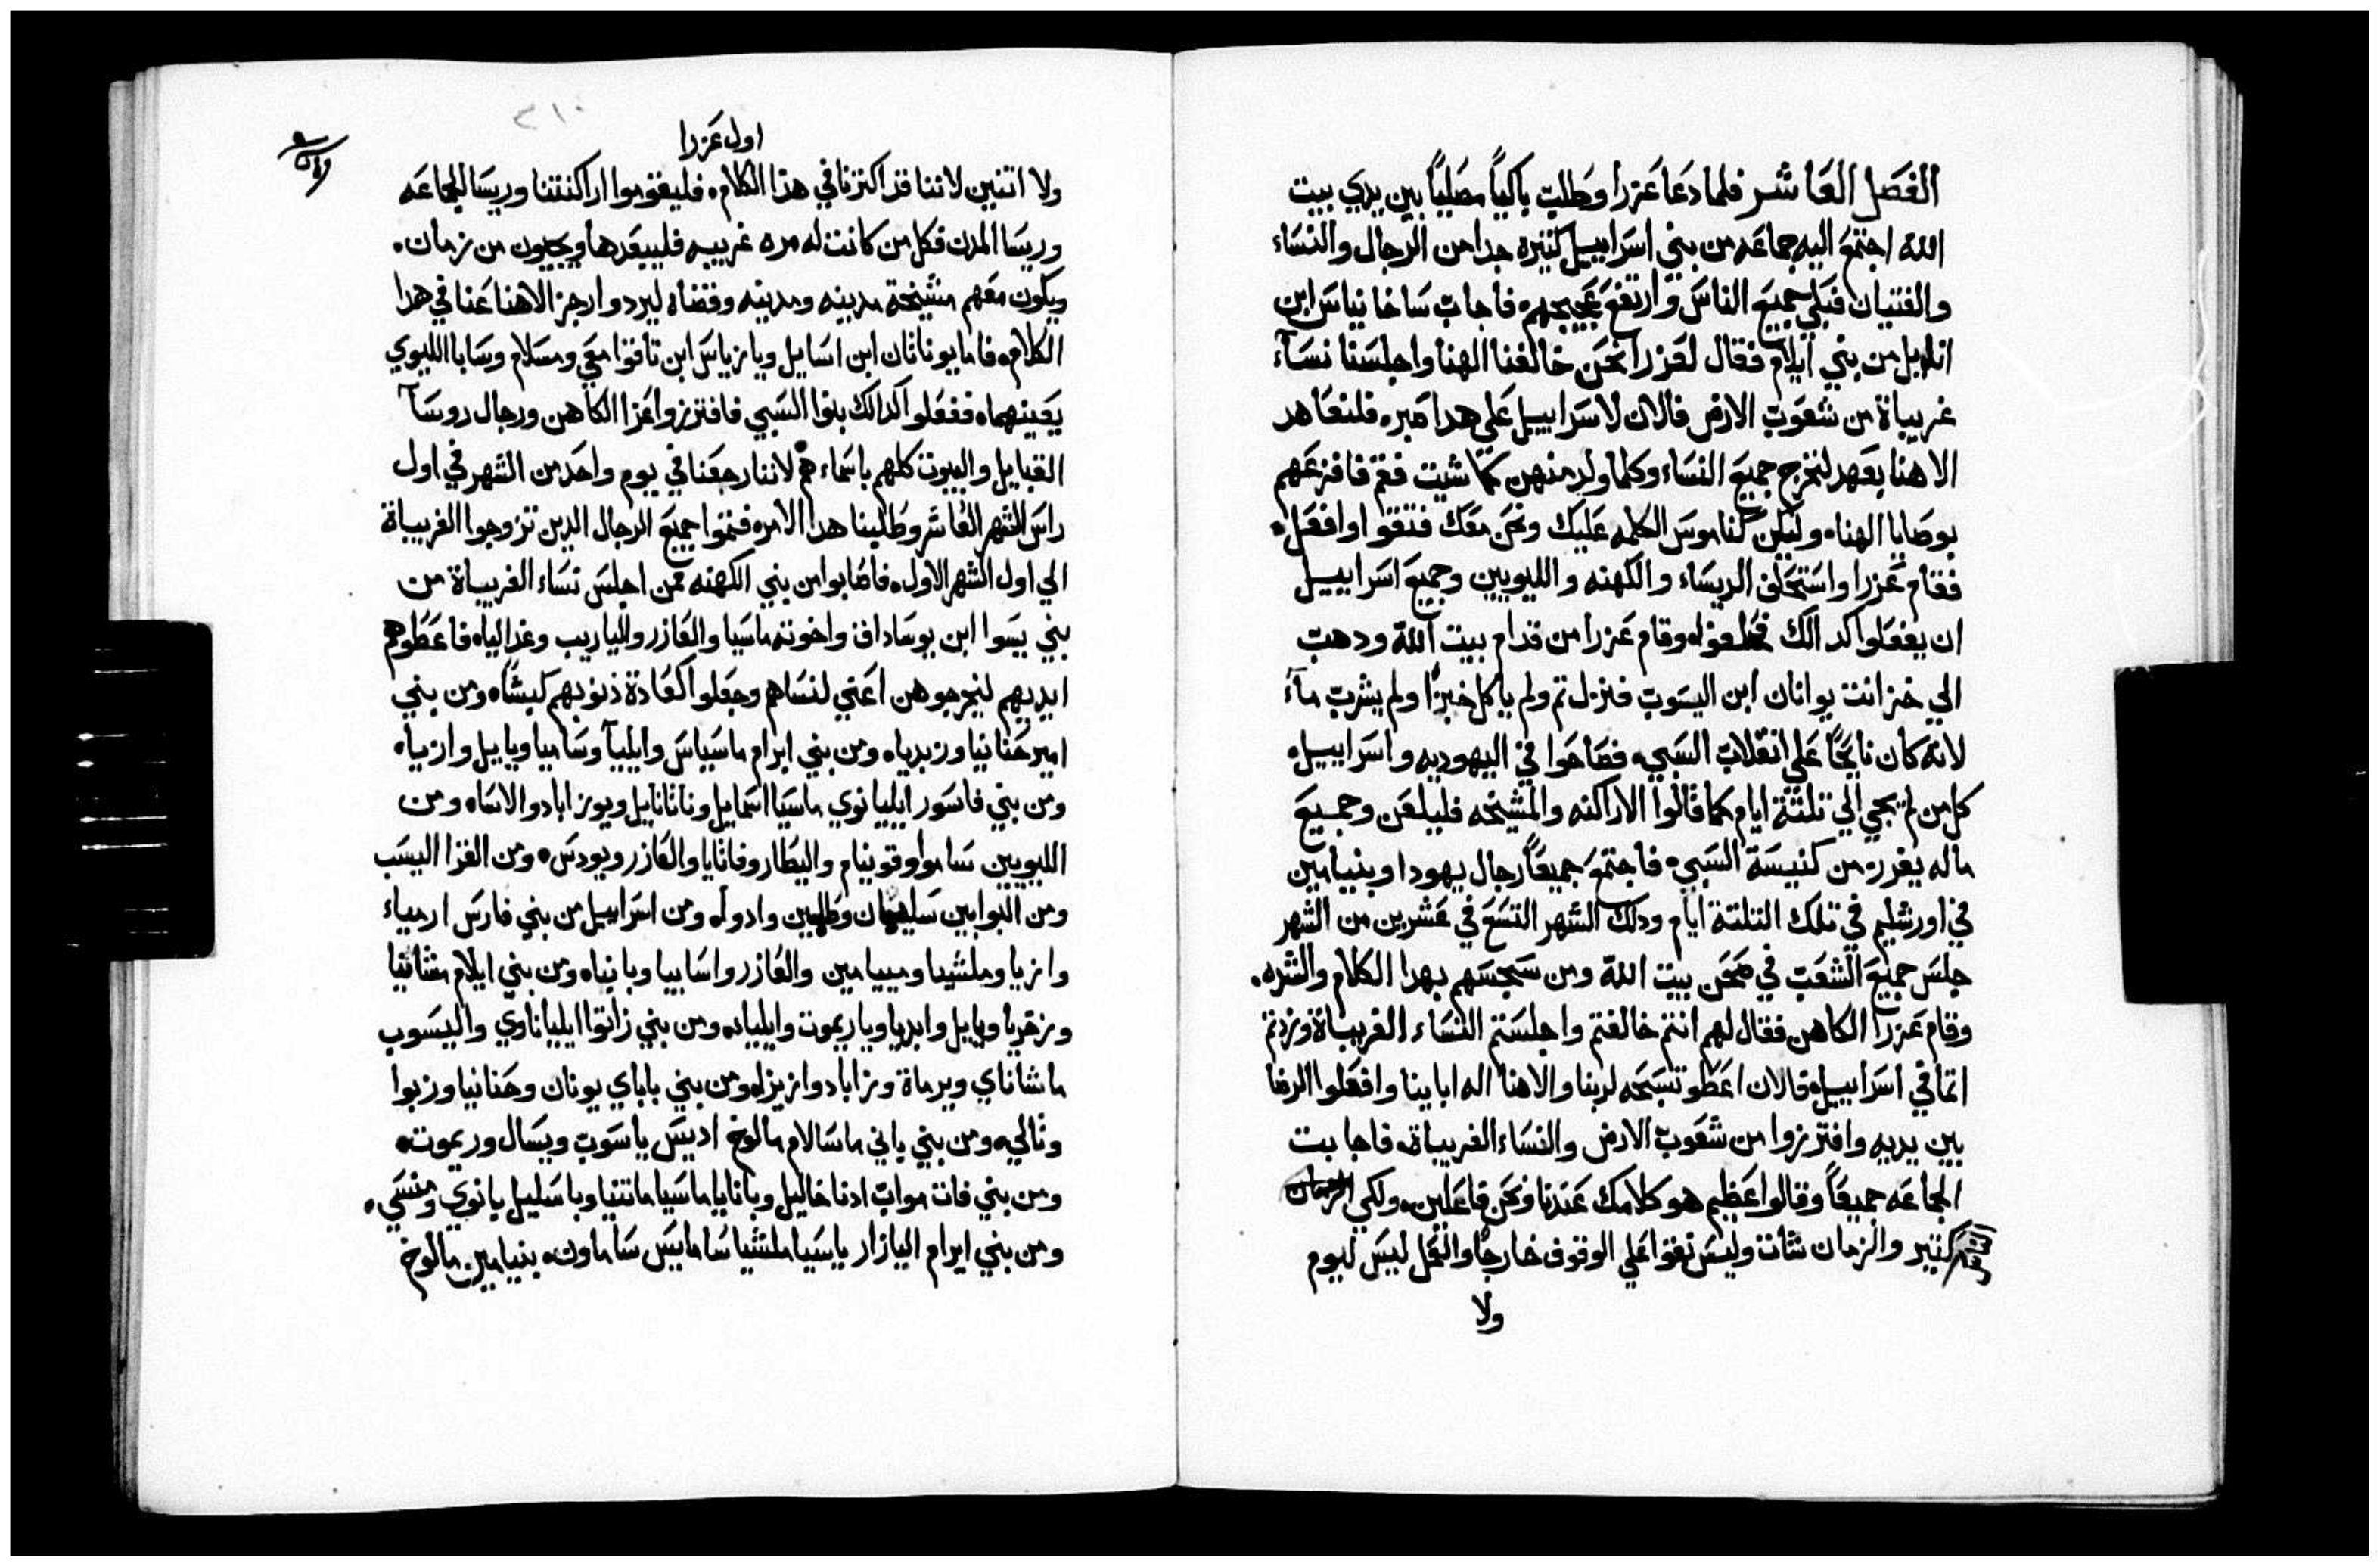 الفصل العاشر فلما دعا عزرا وطلب باكياً مصلياً بين يدي بيت
الله اجتمع اليه جماعه من بني اسراييل كتيره جدا من الرجال والنساء
والفتيان فبكي جميع الناس وارتفع عجيجهم فاجاب ساخانياس ابن
اناييل من بني ايلام فقال لعزرا نحن خالفنا الهنا واجلسنا نسآء
غريباة من شعوب الارض فالان لاسراييل علي هدا صبره فلنعاهد
الاهنا بعهد لنخرج جميع النساء وكلما ولد منهن كما شيت فقم فافزعهم
بوصايا الهنا وليكن كناموس الكلمه عليك ونحن معك فتقوا وافعل
فقام عزرا واستحلف الريساء والكهنه والليويين وجميع اسراييل
ان يفعلوا كدالك فحلفوا وقام عزرا من قدام بيت الله ودهب
الي خزانت يوانان ابن اليسوب فنزل تم ولم ياكل خبزًا ولم يشرب مآء
لانه كان نايحًا علي انقلاب السبي فصاحوا في اليهوديه واسراييل
كل من لم يجي الي تلتة ايام كما قالوا الاراكنه والمشيخه فليلعن وجميع
ماله يفرز من كنيسة السبي فاجتمع جميعاً رجال يهودا وبنيامين
في اورشليم في تلك التلتة ايام ودلك الشهر التسع في عشرين من الشهر
جلس جميع الشعب في صحن بيت الله ومن سجسهم بهدا الكلام والشده
وقام عزرا الكاهن فقال لهم انتم خالفتم واجلستم النساء الغريباة وزدتم
اتما في اسراييل فالان اعطو تسبحه لربنا والاهنا اله اباينا وافعلوا الرضا
بين يديه وافترزوا من شعوب الارض والنساء الغريباة فاجابت
الجماعه جميعاً وقالوا عظيم هو كلامك عندنا ونحن فاعلين ولكي
كتير والزمان شات وليس نقوا علي الوقوف خارجًا والعمل ليس ليوم
ولا
اول عزرا
٢١٠
ولا اتنين لاننا قد اكترنا في هدا الكلام فليقوموا اراكنتنا وريسا الجماعه
وريسا المدن فكل من كانت له مره غريبه فليبعدها ويجيون من زمان
ويكون معهم مشيخة مدينه ومدينه وقضاه ليردوا رجز الاهنا عنا في هدا
الكلام فاما يوناتان ابن اسايل ويازياس ابن تاقوا معي ومسلام وساباا الليوي
يعينهما ففعلوا كدالك بنوا السبي فافترزوا عزا الكاهن ورجال روسآ
القبايل والبيوت كلهم باسماءهم لاننا رجعنا في يوم واحد من الشهر في اول
راس الشهر العاشر وطلبنا هدا الامر فتموا جميع الرجال الدين تزوجوا الغريباة
الي اول الشهر الاول فاصابوا من بني الكهنه ممن اجلس نساء الغريباة من
بني يسوا ابن يوساداف واخوته ماسيا والعازر والياريب وغداليا فاعطوهم
ايديهم ليخرجوهن اعني لنساهم وجعلوا كعادة ذنوبهم كبشاً ومن بني
امير حنانيا وزبديا ومن بني ايرام ماسياس وايلييآ وساميا ويايل وازيا
ومن بني فاسور ايليانوي ماسيا اسمايل وناتانايل ويوزاباد والاسا ومن
الليويين ساموا وقونيام واليطار وفاتايا والعازر ويودس ومن الغزا اليسب
ومن البوابين سليمان وطلمين وادوا ومن اسراييل من بني فارس ارمياء
وازيا وملشيا ومييامين والعازر واسابيا وبانيا ومن بني ايلام مشانيا
وزخريا ويايل وابديا وياريموت وايليا ومن بني زاتوا ايلياناوي واليسوب
ماشاناي ويرماة وزاباد وازيزا ومن بني باباي يونان وحنانيا وزبوا
وتالي ومن بني ياني ماسالام مالوخ اديس ياسوب ويسال وريموت
ومن بني فات مواب ادنا خاليل وبانايا ماسيا ماتنيا وباسليل يانوي ومنسي
ومن بني ايرام اليازار ياسيا ملشيا سامايس ساماون بنيامين مالوخ